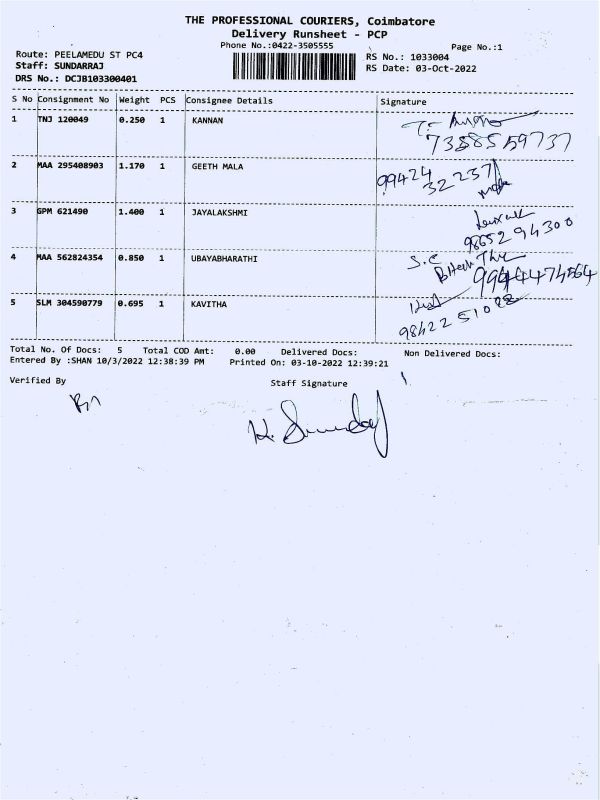 THE PROFESSIONAL COURIERS, Coimbatore
Delivery Runsheet - PCP
Phone No.:0422-3505555
Page No.:1
Route: PEELAMEDU ST PC4
RS No.: 1033004
Staff: SUNDARRAJ
RS Date: 03-Oct-2022
DRS No.: DCJB103300401
S No Consignment No Weight PCS Consignee Details Signature
1 TNJ 120049 0.250 1 KANNAN
73585 59737
2 MAA 295408903 1.170 1 GEETH MALA
99424
32237
3 GPM 621490 1.400 1 JAYALAKSHMI
98652 94300
4 MAA 562824354 0.850 1 UBAYABHARATHI
S.C
9944474564
5 SLM 304590779 0.695 1 KAVITHA
98422 51028
Total No. Of Docs: 5 Total COD Amt: 0.00 Delivered Docs: Non Delivered Docs:
Entered By :SHAN 10/3/2022 12:38:39 PM Printed On: 03-10-2022 12:39:21
Verified By Staff Signature